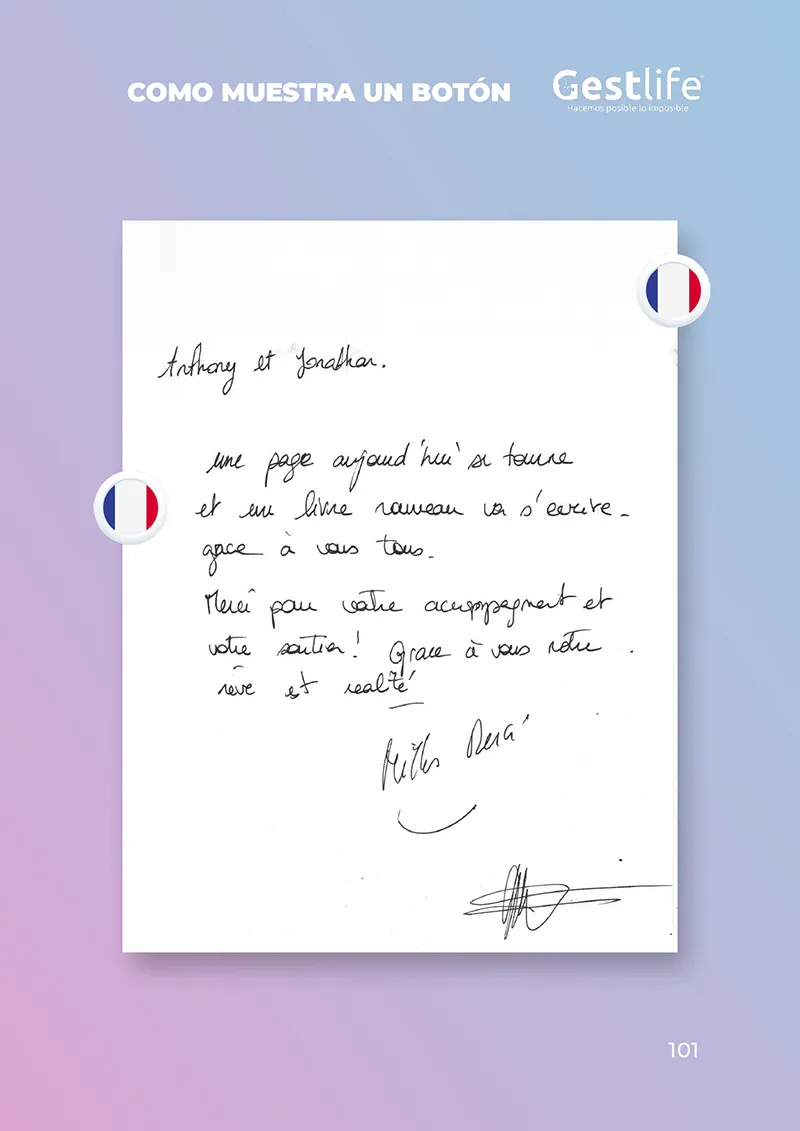 COMO MUESTRA UN BOTÓN
Gestlife
Hacemos posible lo imposible
Anthony et Jonathan.
une page aujourd'hui se tourne
et un livre nouveau va s'ecrire.
grace à vous tous.
Merci pour votre accompagnement et
votre soutien! Grace à vous notre
rêve est realité
Merci
101